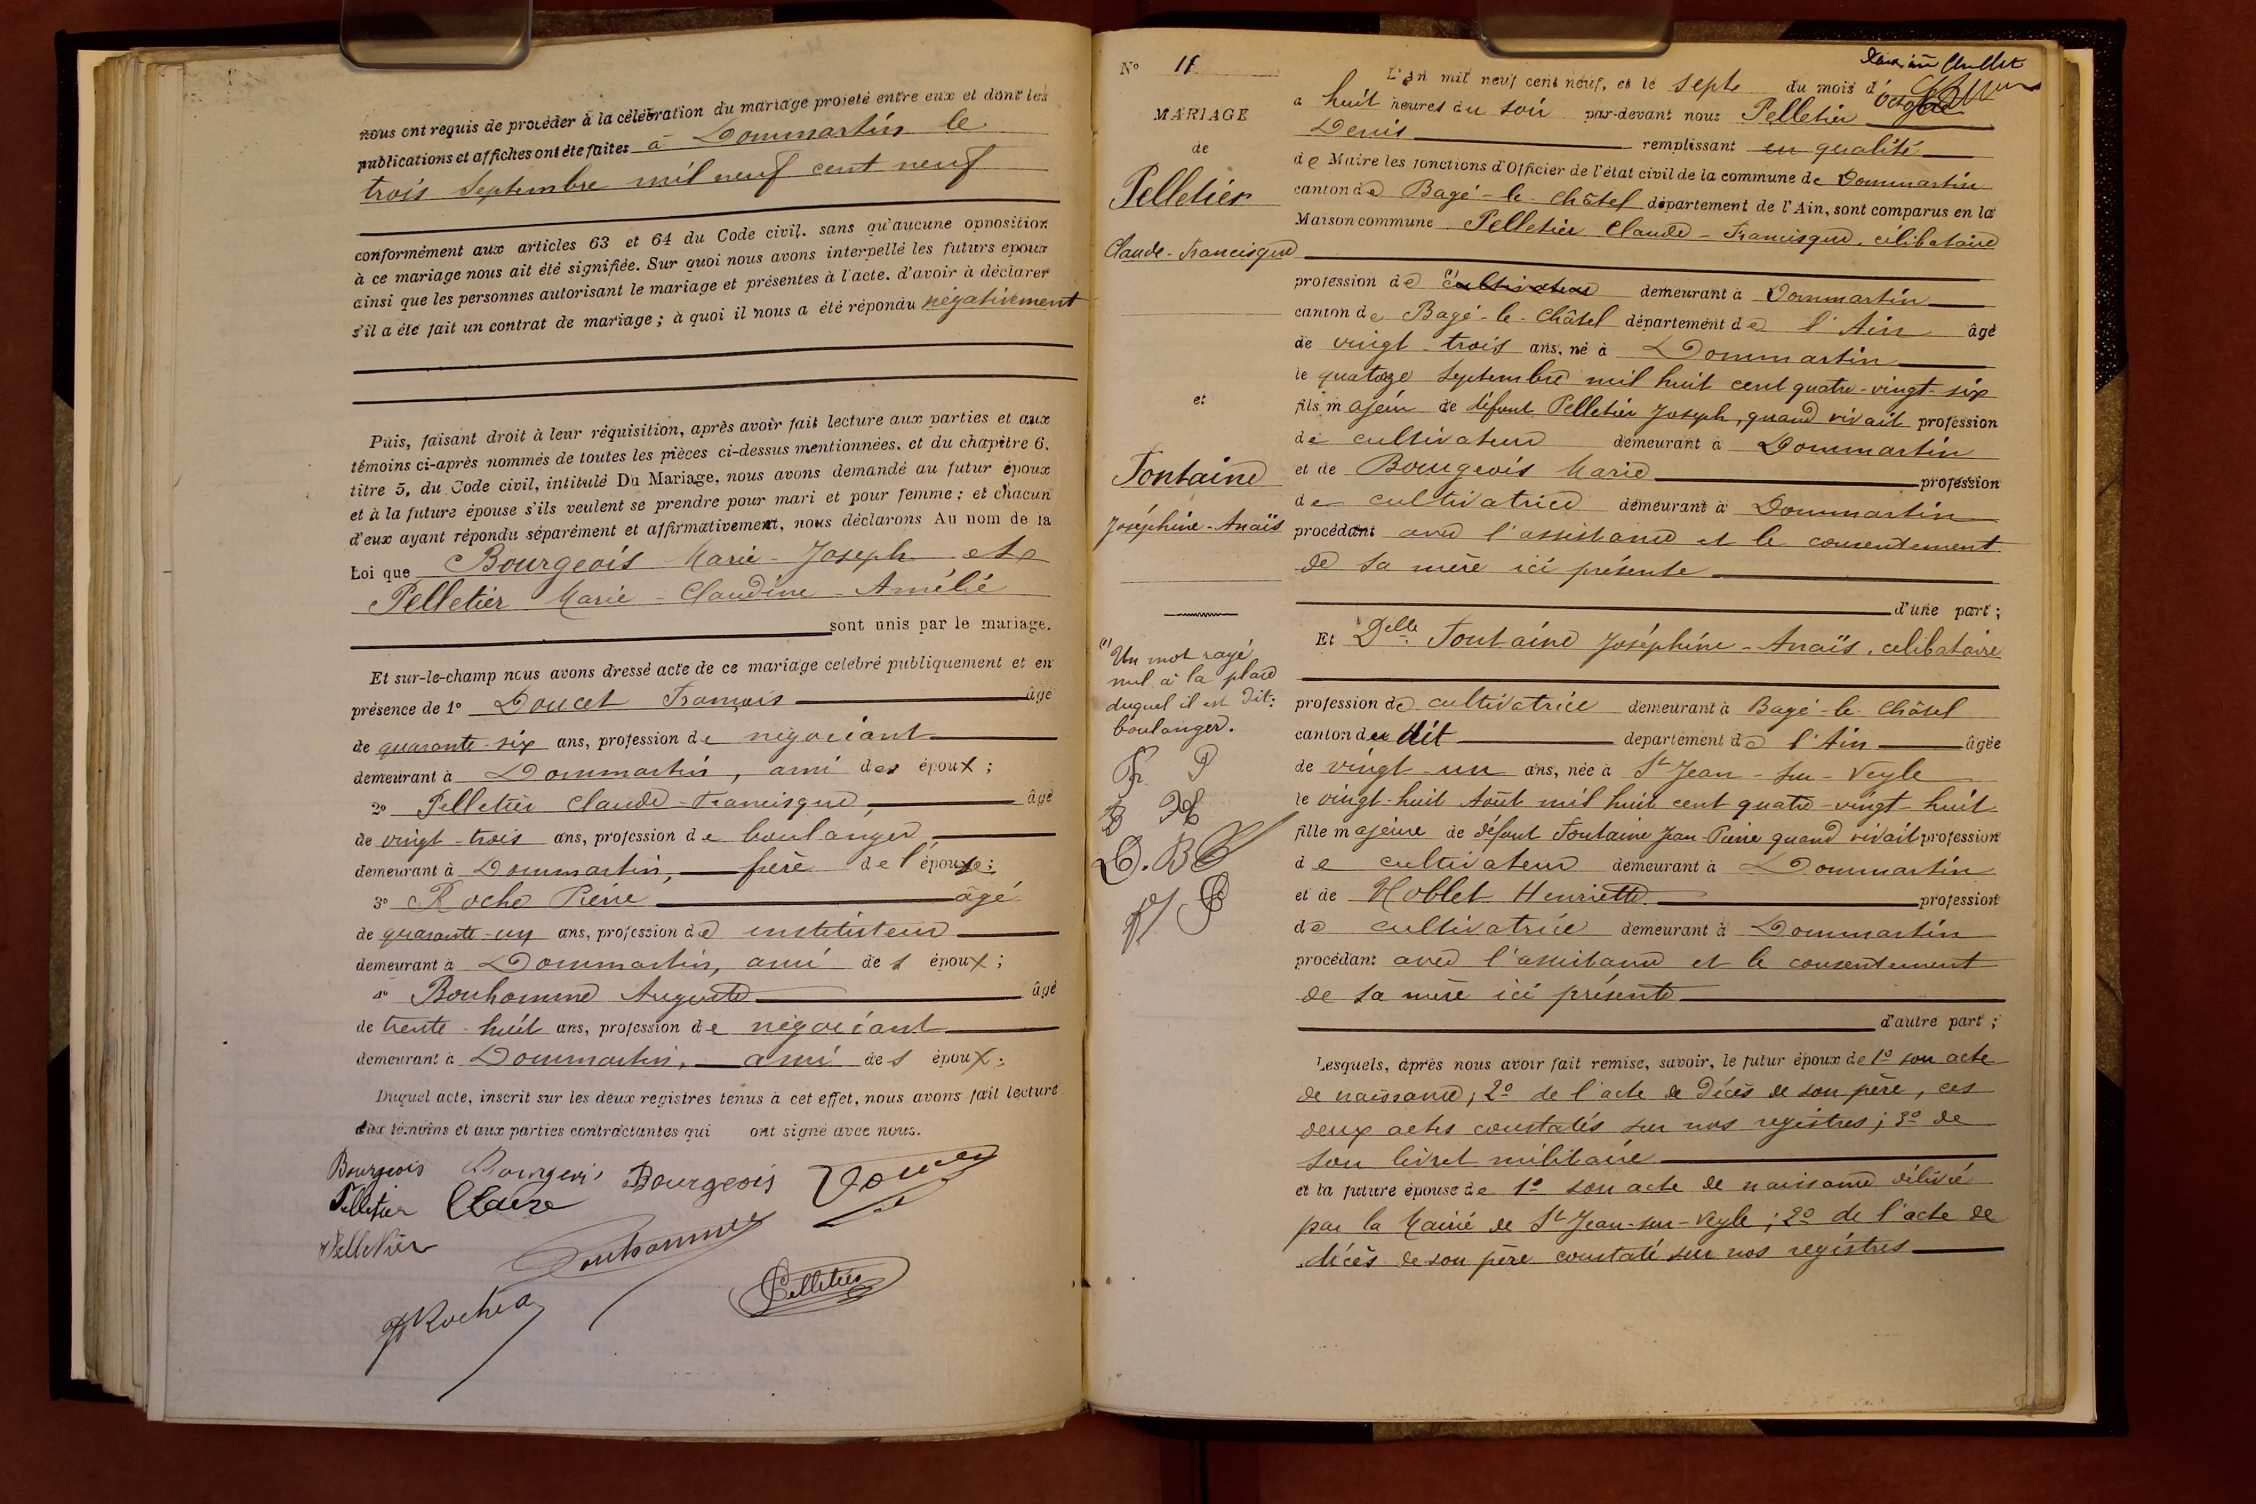 nous ont requis de procéder à la célébration du mariage projeté entre eux et dont les
publications et affiches ont été faites à Dommartin le
trois Septembre mil neuf cent neuf
conformément aux articles 63 et 64 du Code civil. sans qu'aucune opposition
à ce mariage nous ait été signifiée. Sur quoi nous avons interpellé les futurs époux
ainsi que les personnes autorisant le mariage et présentes à l'acte. d'avoir à déclarer
s'il a été fait un contrat de mariage ; à quoi il nous a été répondu négativement
Puis, faisant droit à leur réquisition, après avoir fait lecture aux parties et aux
témoins ci-après nommés de toutes les pièces ci-dessus mentionnées. et du chapitre 6.
titre 5, du Code civil, intitulé Du Mariage, nous avons demandé au futur époux
et à la future épouse s'ils veulent se prendre pour mari et pour femme ; et chacun
d'eux ayant répondu séparément et affirmativement, nous déclarons Au nom de la
Loi que Bourgeois Marie - Joseph et
Pelletier Marie - Claudine - Amélie
sont unis par le mariage.
Et sur-le-champ nous avons dressé acte de ce mariage célébré publiquement et en
présence de 1° Doucet François âgé
de quarante-six ans, profession de négociant
demeurant à Dommartin, ami des époux ;
2° Pelletier Claude-Francisque, âgé
de vingt-trois ans, profession de boulanger
demeurant à Dommartin, frère de l'épouse ;
3° Roche Pierre âgé
de quarante-un ans, profession de instituteur
demeurant à Dommartin, ami des époux ;
4° Bonhomme Auguste âgé
de trente-huit ans, profession de négociant
demeurant à Dommartin, ami des époux ;
Duquel acte, inscrit sur les deux registres tenus à cet effet, nous avons fait lecture
aux témoins et aux parties contractantes qui ont signé avec nous.
Bourgeois Bourgeois Bourgeois Doucet
Pelletier Claire
Pelletier Bonhomme
Pelletier
Roche
N° 11
MARIAGE
de
Pelletier
Claude-Francisque
et
Fontaine
Joséphine-Anaïs
(1) Un mot rayé
nul à la place
duquel il est dit :
boulanger.
L'an mil neuf cent neuf, et le sept du mois d'Octobre
à huit heures du soir par-devant nous Pelletier
Denis remplissant en qualité
de Maire les fonctions d'Officier de l'état civil de la commune de Dommartin
canton de Bagé-le-Châtel département de l'Ain, sont comparus en la
Maison commune Pelletier Claude-Francisque, célibataire
profession de (1) cultivateur demeurant à Dommartin
canton de Bagé-le-Châtel département de l'Ain âgé
de vingt-trois ans, né à Dommartin
le quatorze Septembre mil huit cent quatre-vingt-six
fils majeur de défunt Pelletier Joseph, quand vivait profession
de cultivateur demeurant à Dommartin
et de Bourgeois Marie profession
de cultivatrice demeurant à Dommartin
procédant avec l'assistance et le consentement
de sa mère ici présente
d'une part ;
Et Delle Fontaine Joséphine-Anaïs, célibataire
profession de cultivatrice demeurant à Bagé-le-Châtel
canton du dit département de l'Ain âgée
de vingt-un ans, née à St Jean-sur-Veyle
le vingt-huit Août mil huit cent quatre-vingt-huit
fille majeure de défunt Fontaine Jean-Pierre quand vivait profession
de cultivateur demeurant à Dommartin
et de Noblet Henriette profession
de cultivatrice demeurant à Dommartin
procédant avec l'assistance et le consentement
de sa mère ici présente
d'autre part ;
Lesquels, après nous avoir fait remise, savoir, le futur époux de 1° son acte
de naissance ; 2° de l'acte de décès de son père, ces
deux actes constatés sur nos registres ; 3° de
son livret militaire
et la future épouse de 1° son acte de naissance délivré
par la Mairie de St Jean-sur-Veyle ; 2° de l'acte de
décès de son père constaté sur nos registres